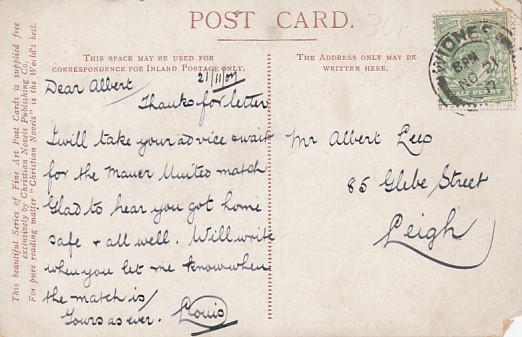 POST CARD.
THIS SPACE MAY BE USED FOR
CORRESPONDENCE FOR INLAND POSTAGE ONLY.
THE ADDRESS ONLY MAY BE
WRITTEN HERE.
This beautiful Series of Fine Art Post Cards is supplied free
exclusively by Christian Novels Publishing Co.
For pure reading matter "Christian Novels" is the World's best.
21/11/07
Dear Albert
Thanks for letter
I will take your advice & wait
for the Mauer United match
Glad to hear you got home
safe & all well. Will write
when you let me know when
the match is/
Yours as ever. Louis
Mr Albert
85 Glebe Street
Leigh
WIDNES
NO 21